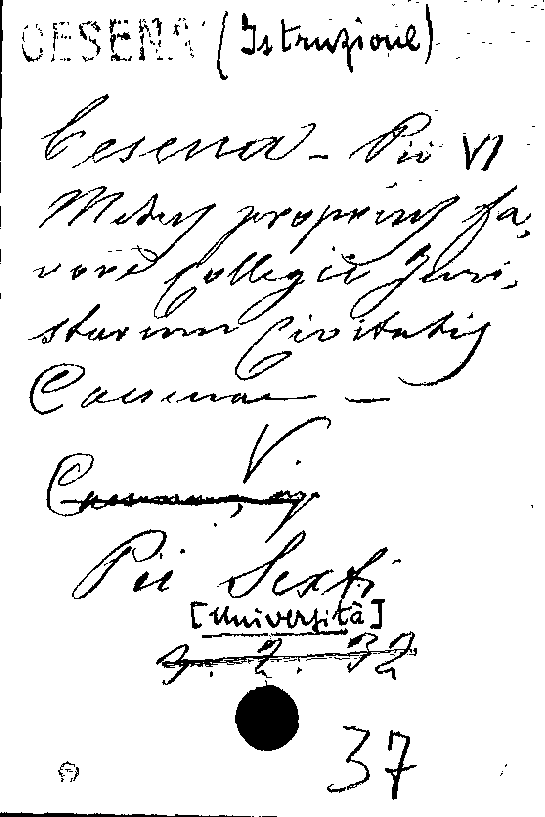 CESENA (Istruzione)
Cesena - Pio VI
Motus proprius fa-
vore Collegii Juri-
starum Civitatis
Caesenae -
V.
Pii Sexti
[Università]
3. 2. 32
37